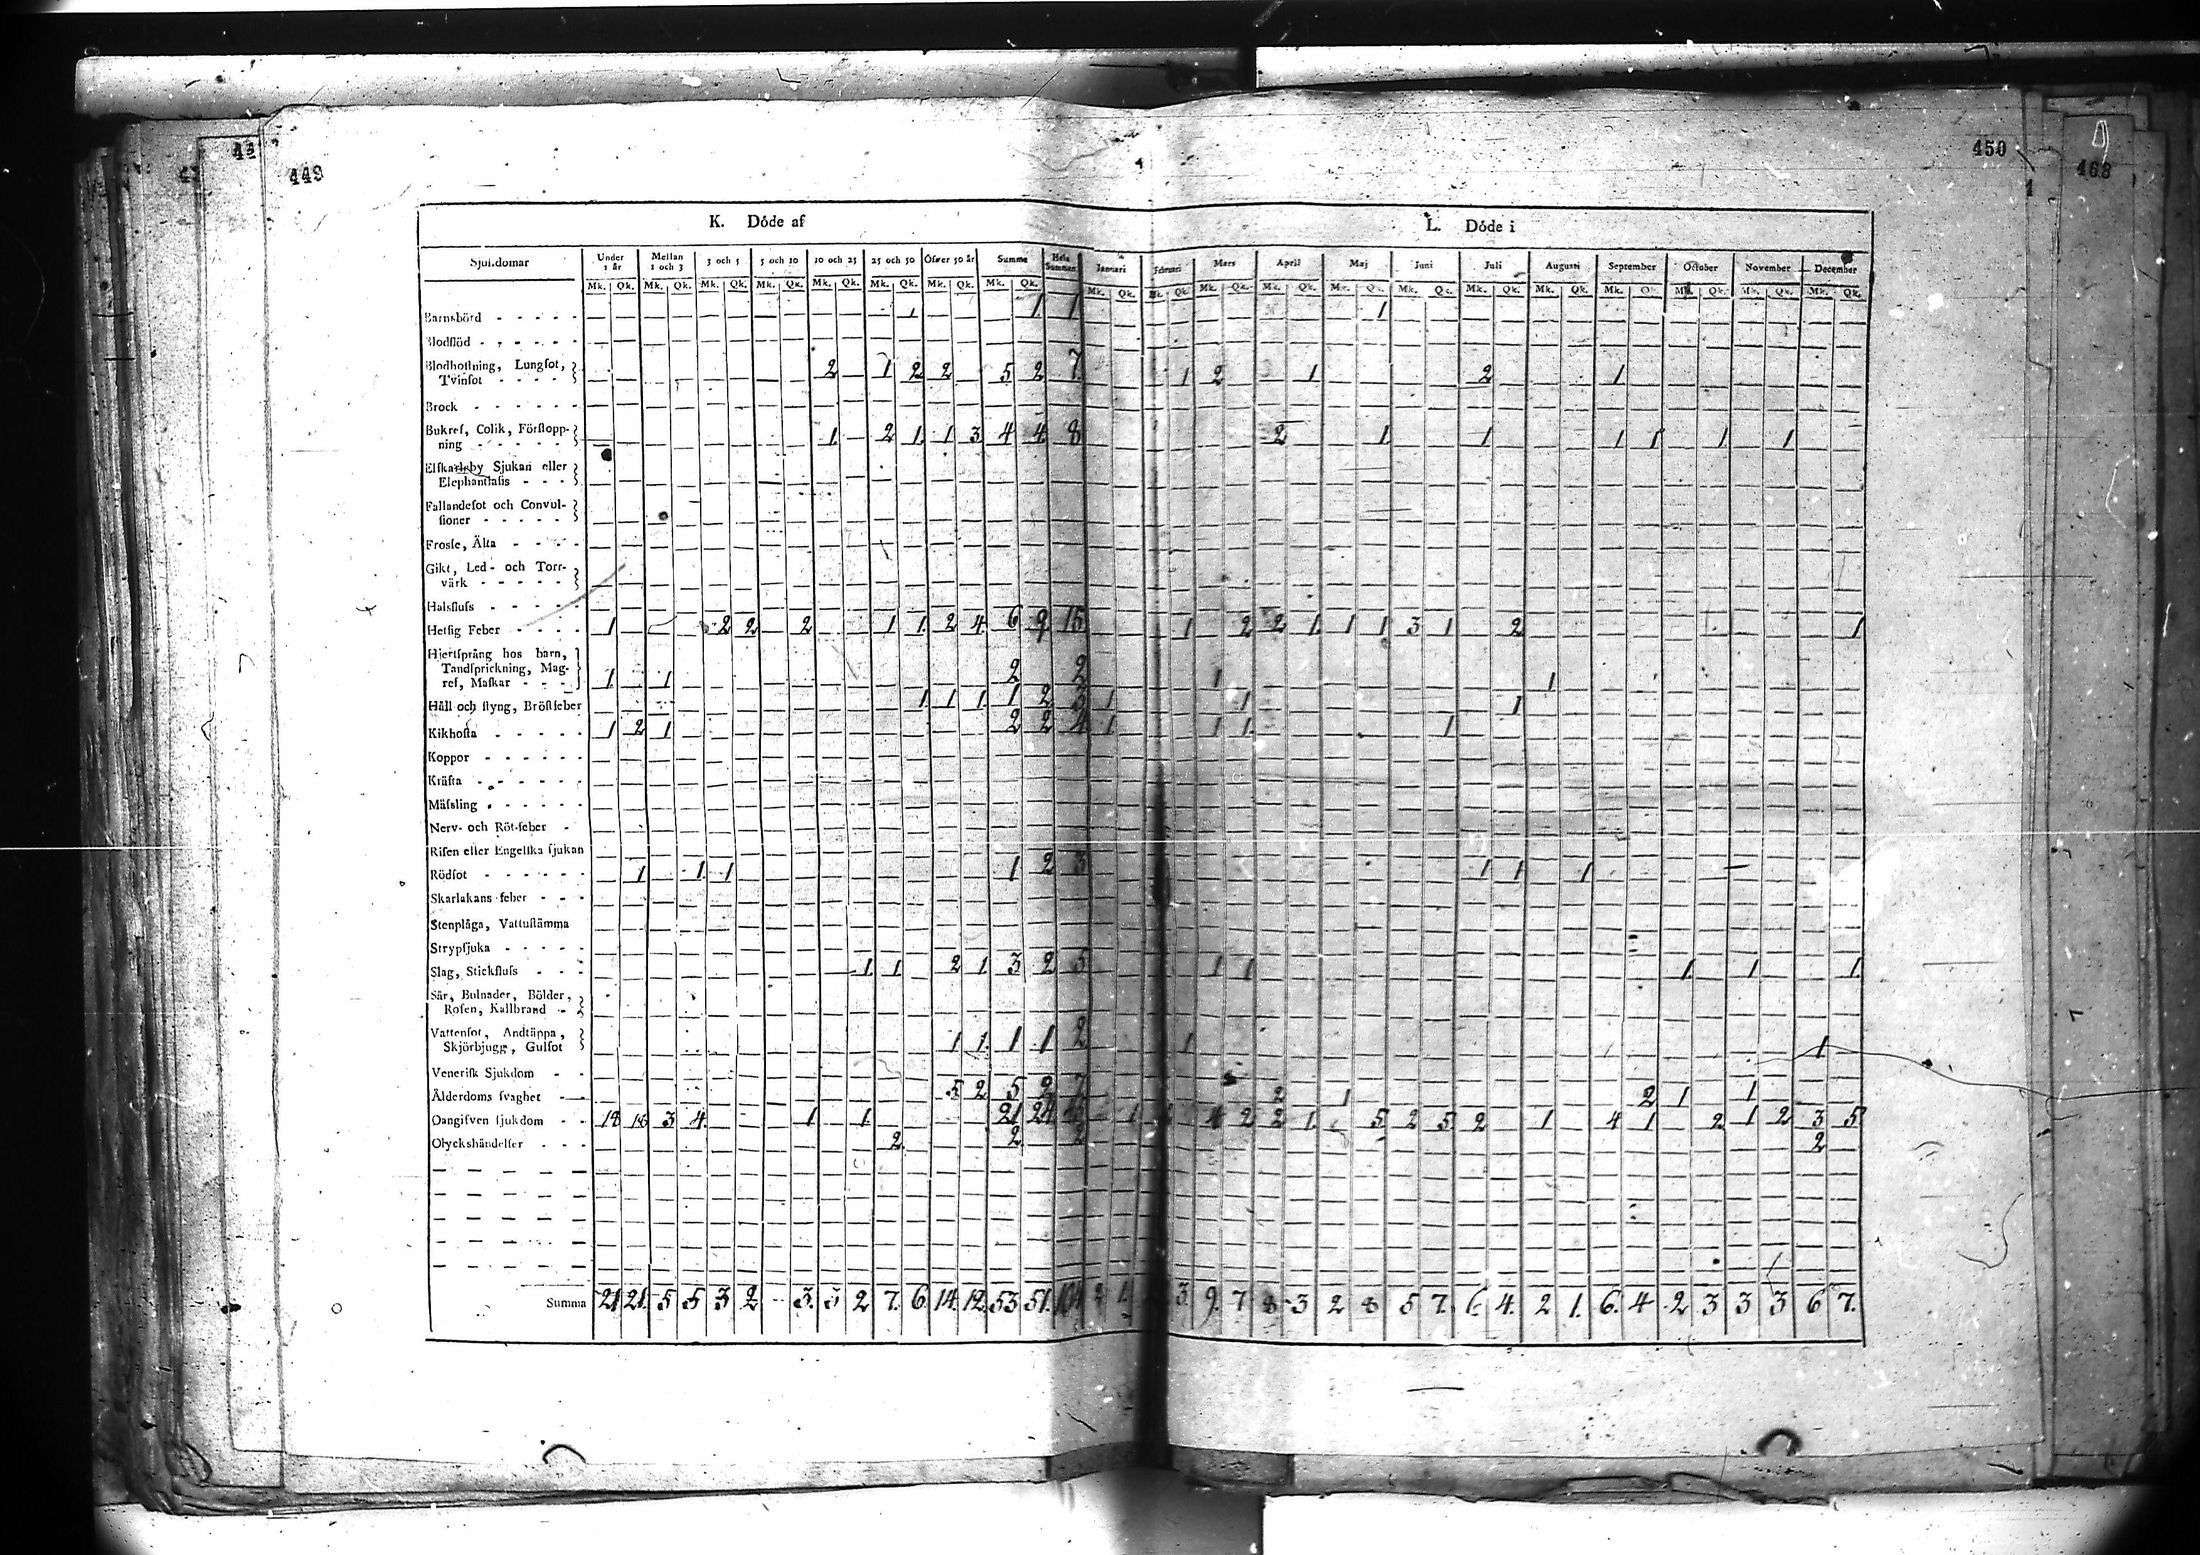 449
450
468
K. Dóde af
L. Dóde i
Sjukdomar
Under 1 år
Mellan 1 och 3
3 och 5
5 och 10
10 och 25
25 och 50
Öfwer 50 år
Summa
Hela Summan
Januari
Februari
Mars
April
Maj
Juni
Juli
Augusti
September
October
November
December
Mk. Qk. Mk. Qk. Mk. Qk. Mk. Qk. Mk. Qk. Mk. Qk. Mk. Qk. Mk. Qk. Mk. Qk. Mk. Qk. Mk. Qk. Mk. Qk. Mk. Qk. Mk. Qk. Mk. Qk. Mk. Qk. Mk. Qk. Mk. Qk. Mk. Qk. Mk. Qk.
Barnsbörd - - - - - 1 1 1 1
Blodflöd - - - - - -
Blodhostning, Lungsot,
Tvinsot - - - - 2 1 2 2 5 2 7 1 2 1 2 1
Brock - - - - - -
Bukref, Colik, Förstopp-
ning - - - - - 1. 2 1. 1 3 4 4 8 2 1 1 1 1 1 1
Elfkarleby Sjukan eller
Elephantiasis - - -
Fallandesot och Convul-
sioner - - - - -
Frossa, Älta - - - -
Gikt, Led- och Torr-
värk - - - - -
Halsfluss - - - - -
Hetsig Feber - - - - 1 2 2 2 1 1. 2 4. 6 9 15 1 2 2 1. 1 1 3 1 2 1
Hjertsprång hos barn,
Tandsprickning, Mag-
ref, Maskar - - - 1. 1 2 2 1 1
Håll och styng, Bröstfeber 1 1 1. 1 2 3 1 1 1
Kikhosta - - - - - 1 2 1 2 2 4 1 1 1. 1
Koppor - - - - - -
Kräfta - - - - - -
Mässling - - - - - -
Nerv- och Röt-feber -
Risen eller Engelska sjukan
Rödsot - - - - - - 1 1. 1 1 2 3 1 1 1
Skarlakans-feber - - -
Stenplåga, Vattustämma
Strypsjuka - - - - -
Slag, Stickfluss - - - 1. 1 2 1. 3 2 5 1 1 1. 1 1.
Sår, Bulnader, Bölder,
Rosen, Kallbrand -
Vattensot, Andtäppa,
Skjörbjugg, Gulsot 1 1. 1 1 2 1 1
Venerisk Sjukdom - -
Ålderdoms svaghet - - 5 2 5 2 7 2 1 2 1 1
Oangifven sjukdom - - 18 16 3 4. 1 1. 21 24 1 4 2 2 1. 5 2 5. 2 1 4 1 2 1 2 3 5
Olyckshändelser - - - 2. 2 2 2
Summa 21 21. 5 5 3 2 3. 3 2 7. 6 14. 12. 53 51. 104 2 1. 3. 9. 7 8 3 2 8 5 7. 6 4. 2 1. 6. 4 2 3 3 3 6 7.